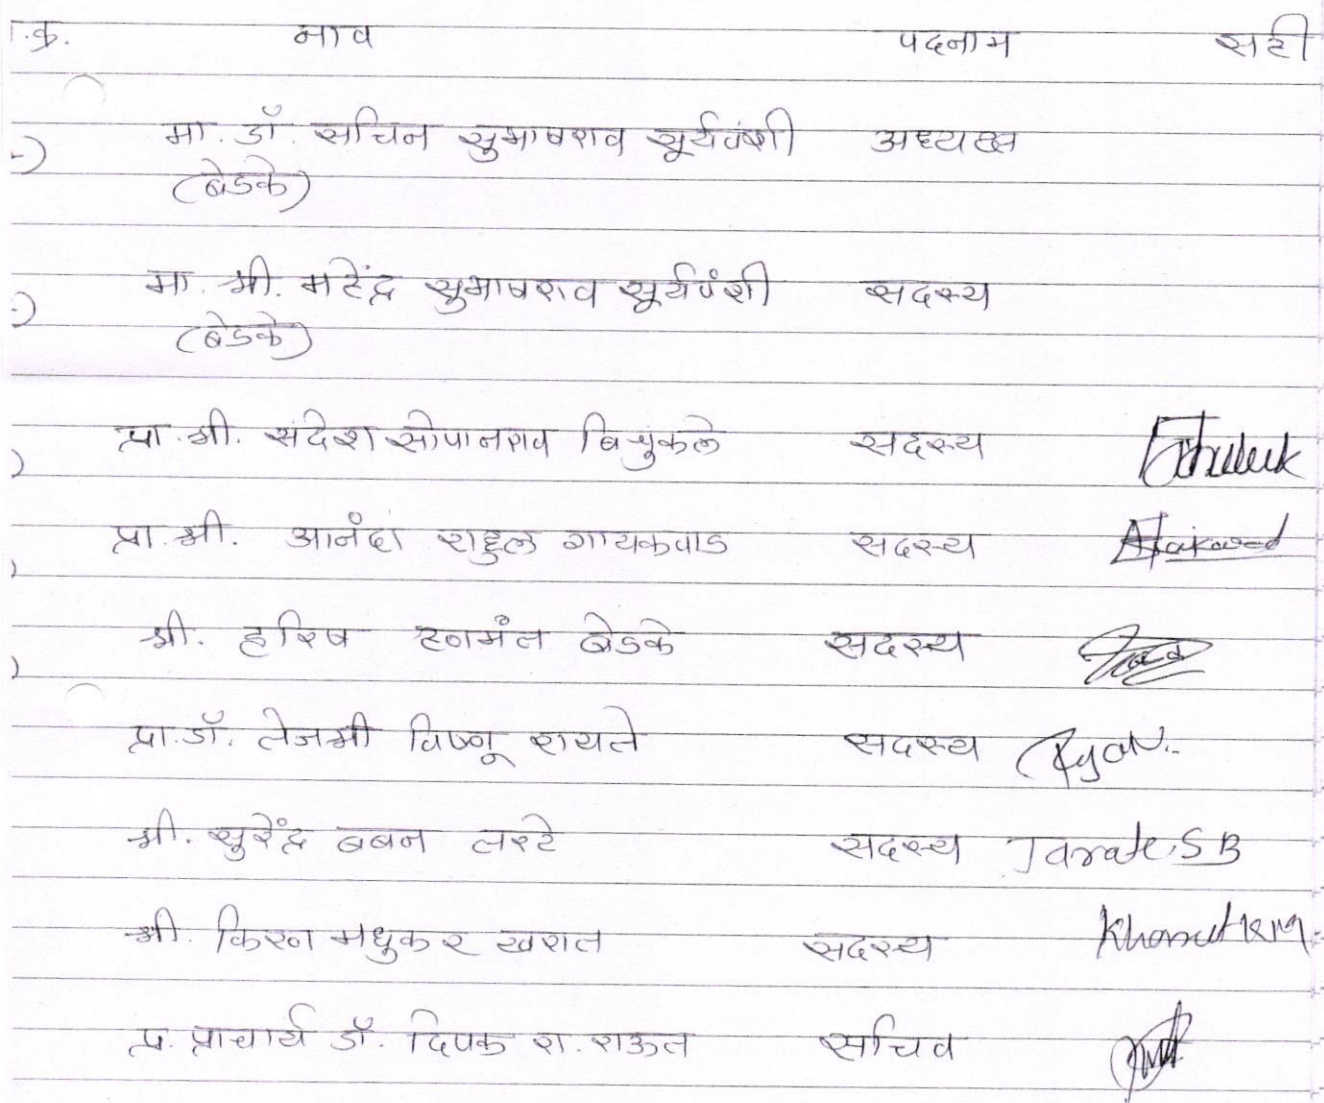 .क्र. नाव पदनाम सही
मा. डॉ. सचिन सुभाषराव सूर्यवंशी अध्यक्ष
(बेडके)
मा. श्री. महेंद्र सुभाषराव सूर्यवंशी सदस्य
(बेडके)
प्रा. श्री. संदेश सोपानराव बिचुकले सदस्य
प्रा. श्री. आनंदा राहुल गायकवाड सदस्य
श्री. हरिष हनमंत बेडके सदस्य
प्रा. डॉ. तेजश्री विष्णू रायते सदस्य
श्री. सुरेंद्र बबन तरटे सदस्य Tarate.S B
श्री. किरण मधुकर खरात सदस्य Kharat KM
प्र. प्राचार्य डॉ. दिपक रा. राऊत सचिव